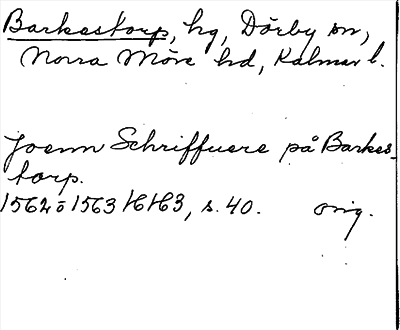 Barkestorp, hg, Dörby sn,
Norra Möre hd, Kalmar l.
Joenn Schriffuere på Barkes-
torp.
1562 o 1563 16163, s. 40. orig.